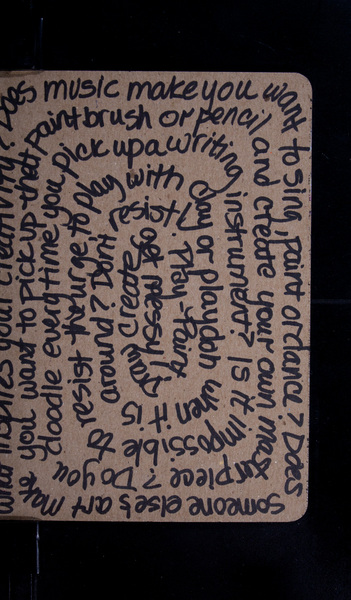 What inspires your creativity?
Does music make you want
to sing, paint or dance? Does
someone else's art make
you want to pick up that
paintbrush or pencil
and create your own
masterpiece? Do you
doodle every time you
pick up a writing
instrument? Is it
impossible to
resist the urge to
play with
clay or playdoh
when it is
around? Don't
resist!
Play - Paint,
Draw, Create
get messy!